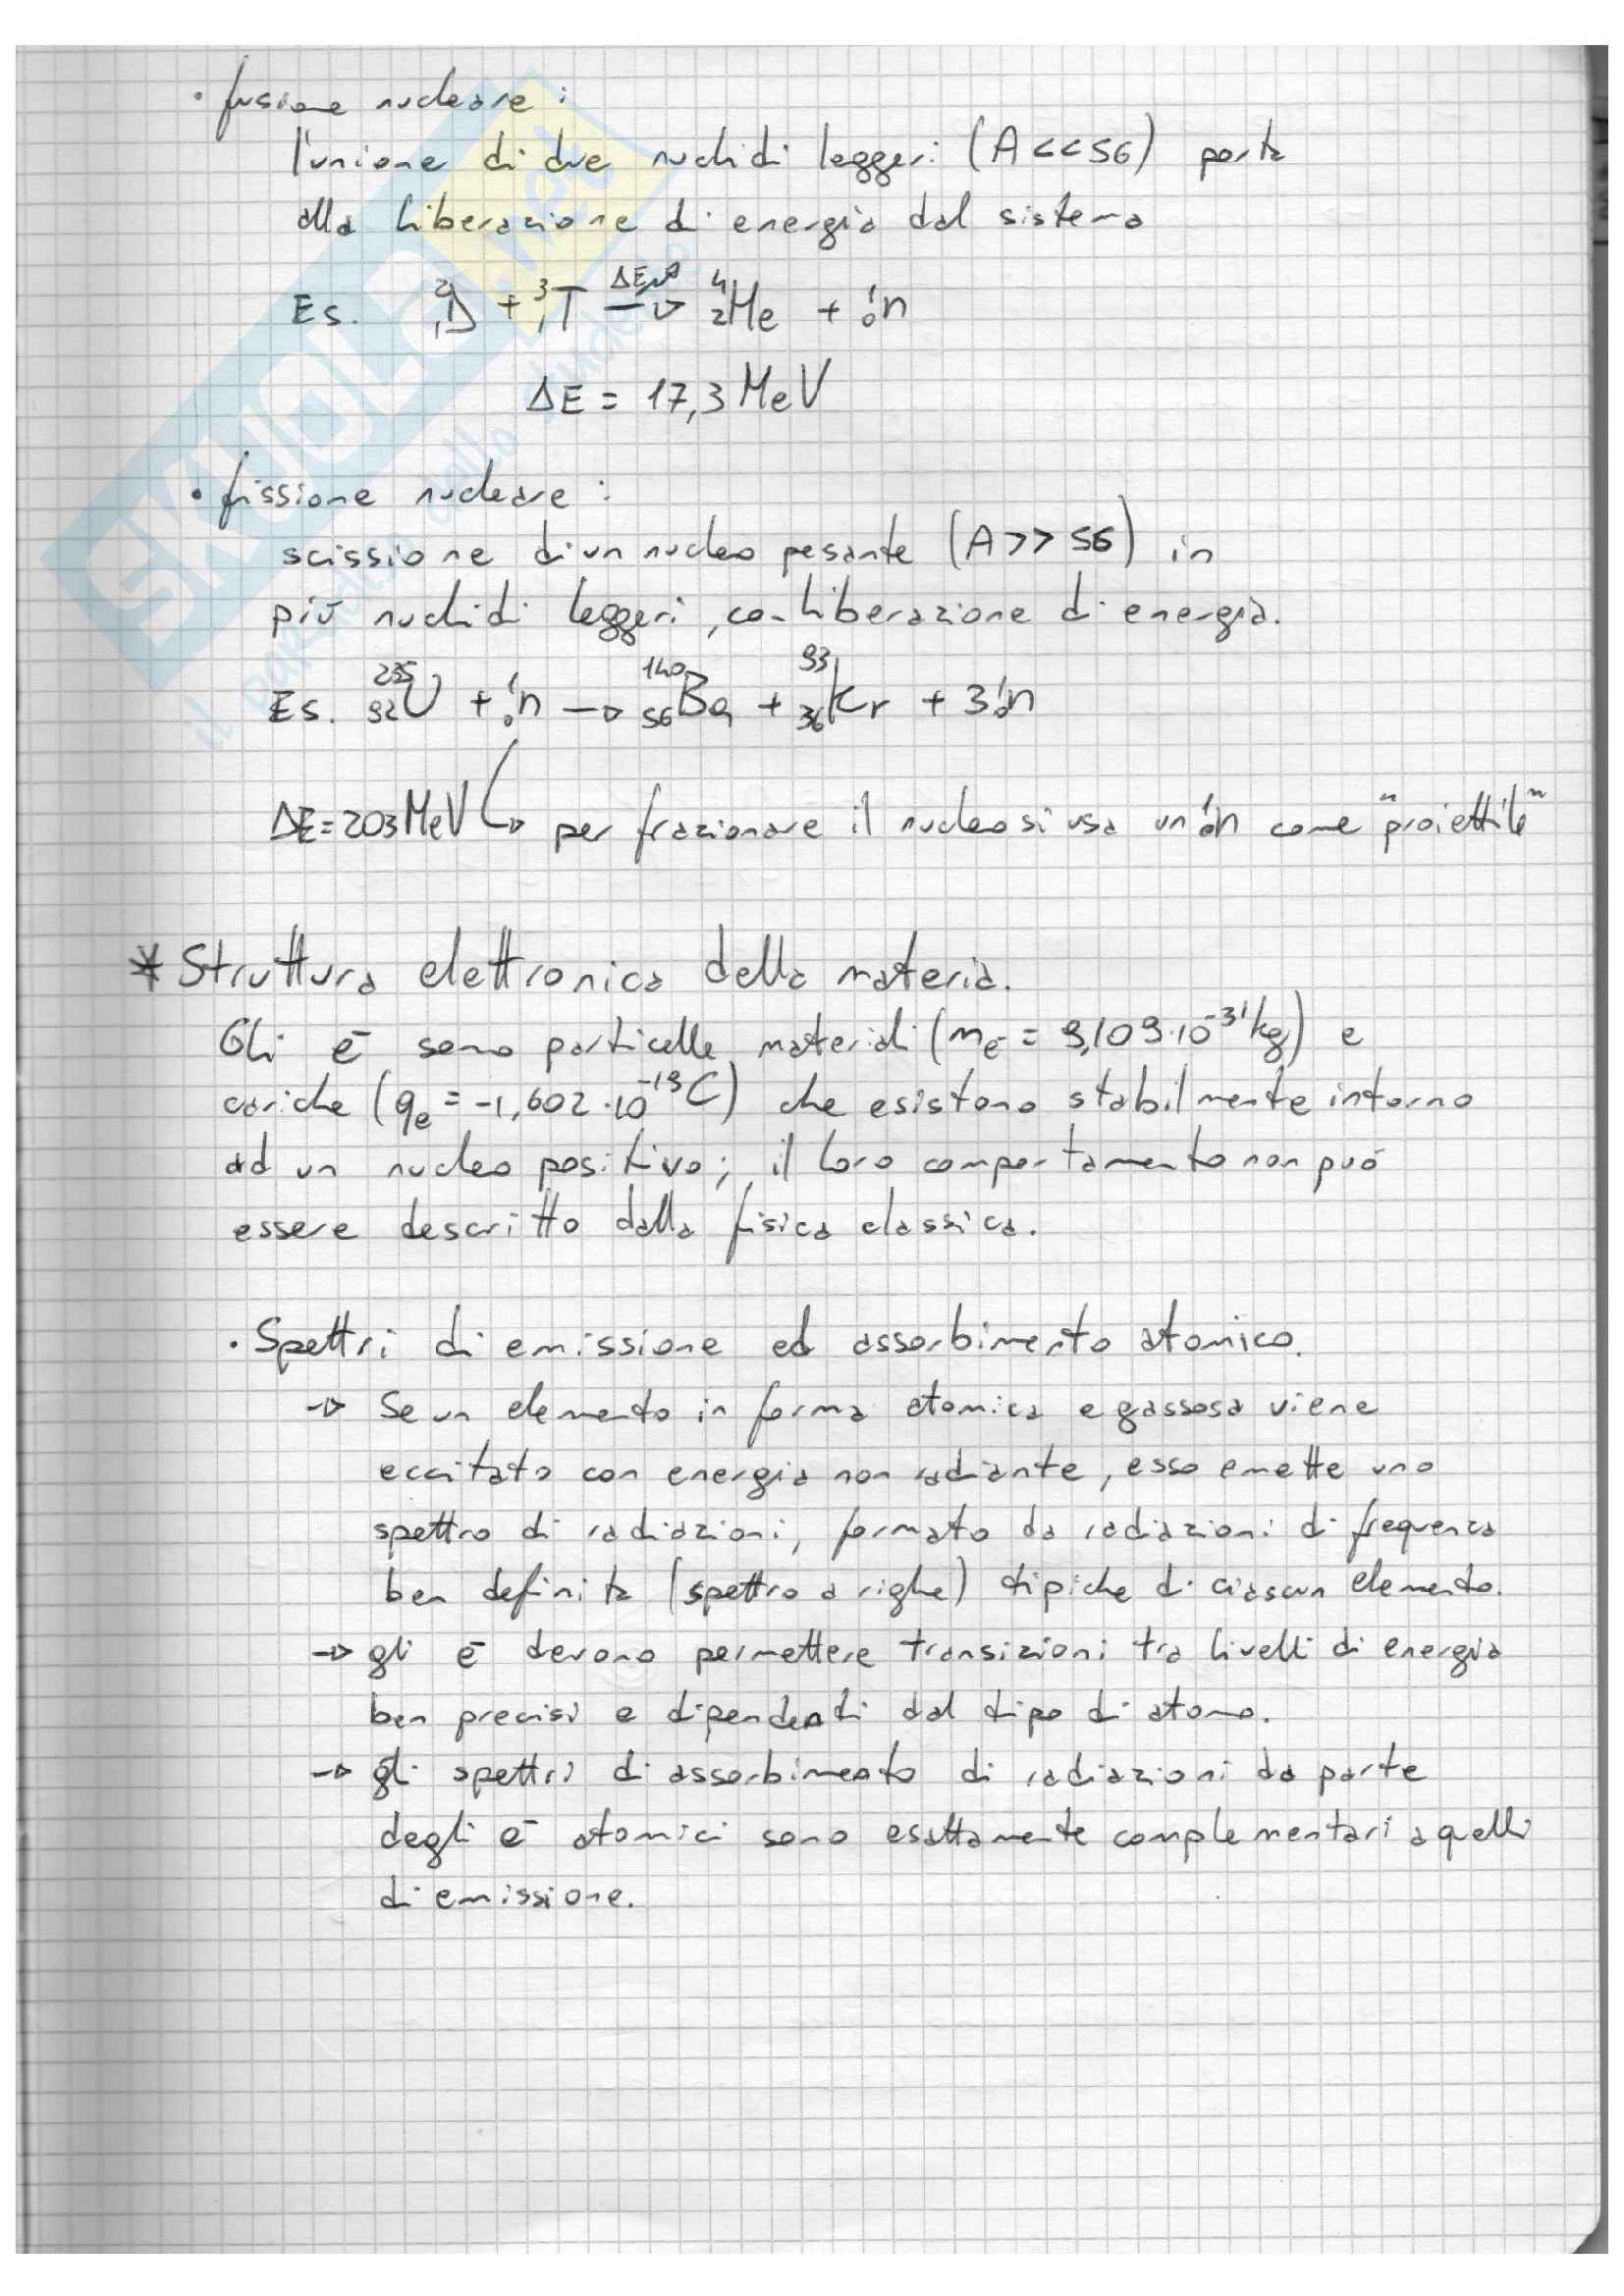 • fusione nucleare :
l'unione di due nuclidi leggeri (A << 56) porta
alla liberazione di energia dal sistema
Es. ²₁D + ³₁T —ΔE↗→ ⁴₂He + ¹₀n
ΔE = 17,3 MeV
• fissione nucleare :
scissione di un nucleo pesante (A >> 56) in
più nuclidi leggeri, con liberazione di energia.
Es. ²³⁵₉₂U + ¹₀n → ¹⁴⁰₅₆Ba + ⁹³₃₆Kr + 3¹₀n
ΔE = 203 MeV ↳ per frazionare il nucleo si usa un ¹₀n come "proiettile"
* Struttura elettronica della materia.
Gli e⁻ sono particelle materiali (mₑ⁻ = 9,109·10⁻³¹ kg) e
cariche (qₑ = -1,602·10⁻¹⁹ C) che esistono stabilmente intorno
ad un nucleo positivo; il loro comportamento non può
essere descritto dalla fisica classica.
• Spettri di emissione ed assorbimento atomico.
→ Se un elemento in forma atomica e gassosa viene
eccitato con energia non radiante, esso emette uno
spettro di radiazioni, formato da radiazioni di frequenza
ben definita (spettro a righe) tipiche di ciascun elemento.
→ gli e⁻ devono permettere transizioni tra livelli di energia
ben precisi e dipendenti dal tipo di atomo.
→ gli spettri di assorbimento di radiazioni da parte
degli e⁻ atomici sono esattamente complementari a quelli
di emissione.
SKUOLA.net
il paradiso dello studente